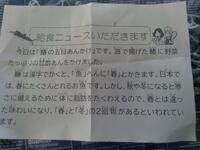 給食ニュースいただきます
今日は「鰆の五目あんかけ」です。油で揚げた鰆に野菜
たっぷりの甘酢あんをかけました。
鰆は漢字でかくと、「魚」へんに「春」とかきます。日本で
は、春にたくさんとれるお魚です。しかし、秋や冬になると
寒さに備えるために体に脂肪をたくわえるので、春とは違っ
た味わいになり、「春」と「冬」の2回旬があるといわれてい
ます。